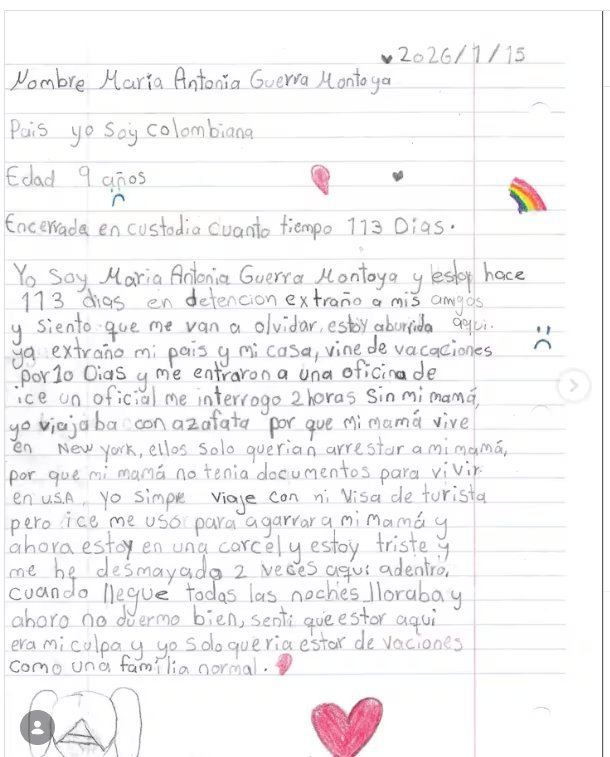 2026/1/15
Nombre Maria Antonia Guerra Montoya
Pais yo soy colombiana
Edad 9 años
Encerrada en custodia cuanto tiempo 113 Dias.
Yo soy Maria Antonia Guerra Montoya y estoy hace
113 dias en detencion extraño a mis amigos
y siento que me van a olvidar, estoy aburrida aqui.
ya extraño mi pais y mi casa, vine de vacaciones
por 10 Dias y me entraron a una oficina de
ice un oficial me interrogo 2 horas sin mi mamá,
yo viajaba con azafata por que mi mamá vive
en New york, ellos solo querian arrestar a mi mamá,
por que mi mamá no tenia documentos para vivir
en USA. Yo simpre viaje con mi visa de turista
pero ice me uso para agarrar a mi mamá y
ahora estoy en una carcel y estoy triste y
me he desmayado 2 veces aqui adentro,
cuando llegue todas las noches lloraba y
ahora no duermo bien, senti que estar aqui
era mi culpa y yo solo queria estar de vaciones
como una familia normal.